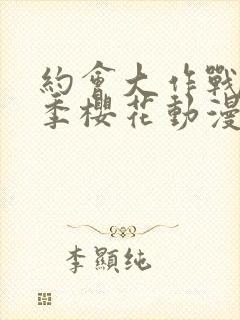 約會大作戰
季櫻花動漫
李顯純